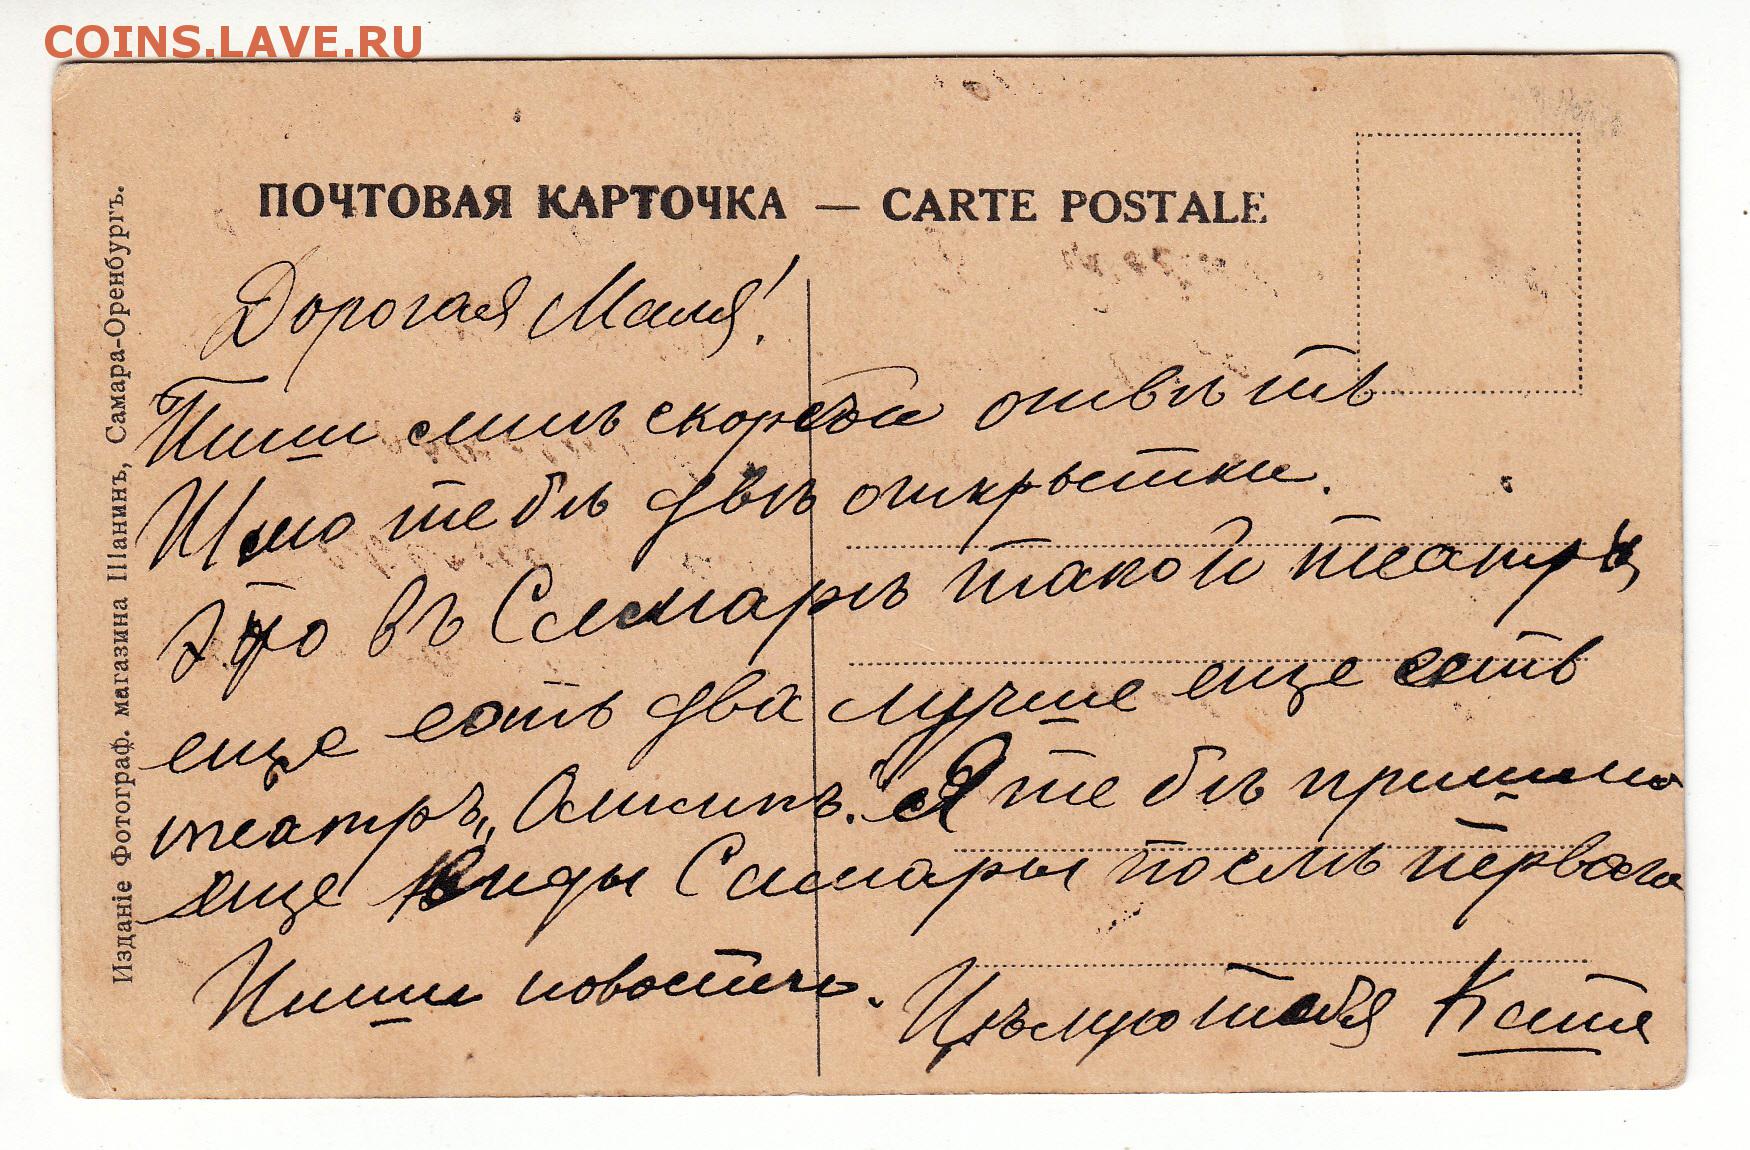 COINS.LAVE.RU
ПОЧТОВАЯ КАРТОЧКА — CARTE POSTALE
Изданіе Фотограф. магазина Шанинъ, Самара-Оренбургъ.
Дорогая Маля!
Пиши мнѣ скорѣй отвѣтъ
Шлю тебѣ двѣ открытки.
Это въ Самарѣ такой театръ,
еще есть два лучше еще есть
театръ „Олимпъ." Я тебѣ пришлю
еще виды Самары послѣ перваго
Пиши новости. Цѣлую тебя Катя